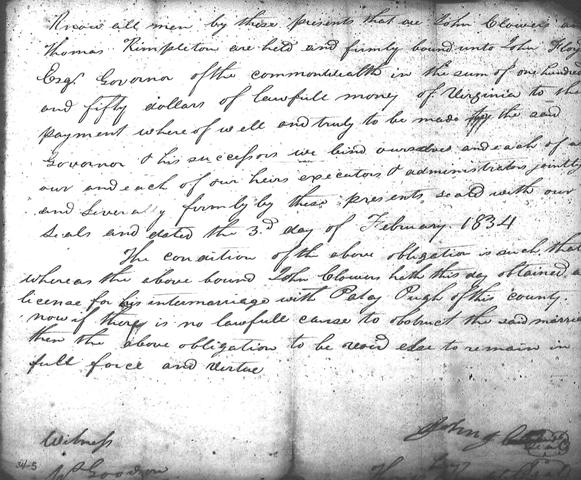 Know all men by these presents that we John Clowers and
Thomas Kimpleton are held and firmly bound unto John Floyd
Esqr. Governor of the commonwealth in the sum of one hundred
and fifty dollars of lawfull money of Virginia to the
payment where of well and truly to be made to the said
Governor & his successors we bind ourselves and each of us
our and each of our heirs executors & administrators jointly
and severaly firmly by these presents, seald with our
seals and dated the 3rd day of February 1834
The condition of the above obligation is such, that
whereas the above bound John Clowers hath this day obtained a
license for his intermarriage with Patsy Pugh of this county
now if there is no lawfull cause to obstruct the said marriage
then the above obligation to be void else to remain in
full force and virtue
Witness
John
Wm Goodson
34-5